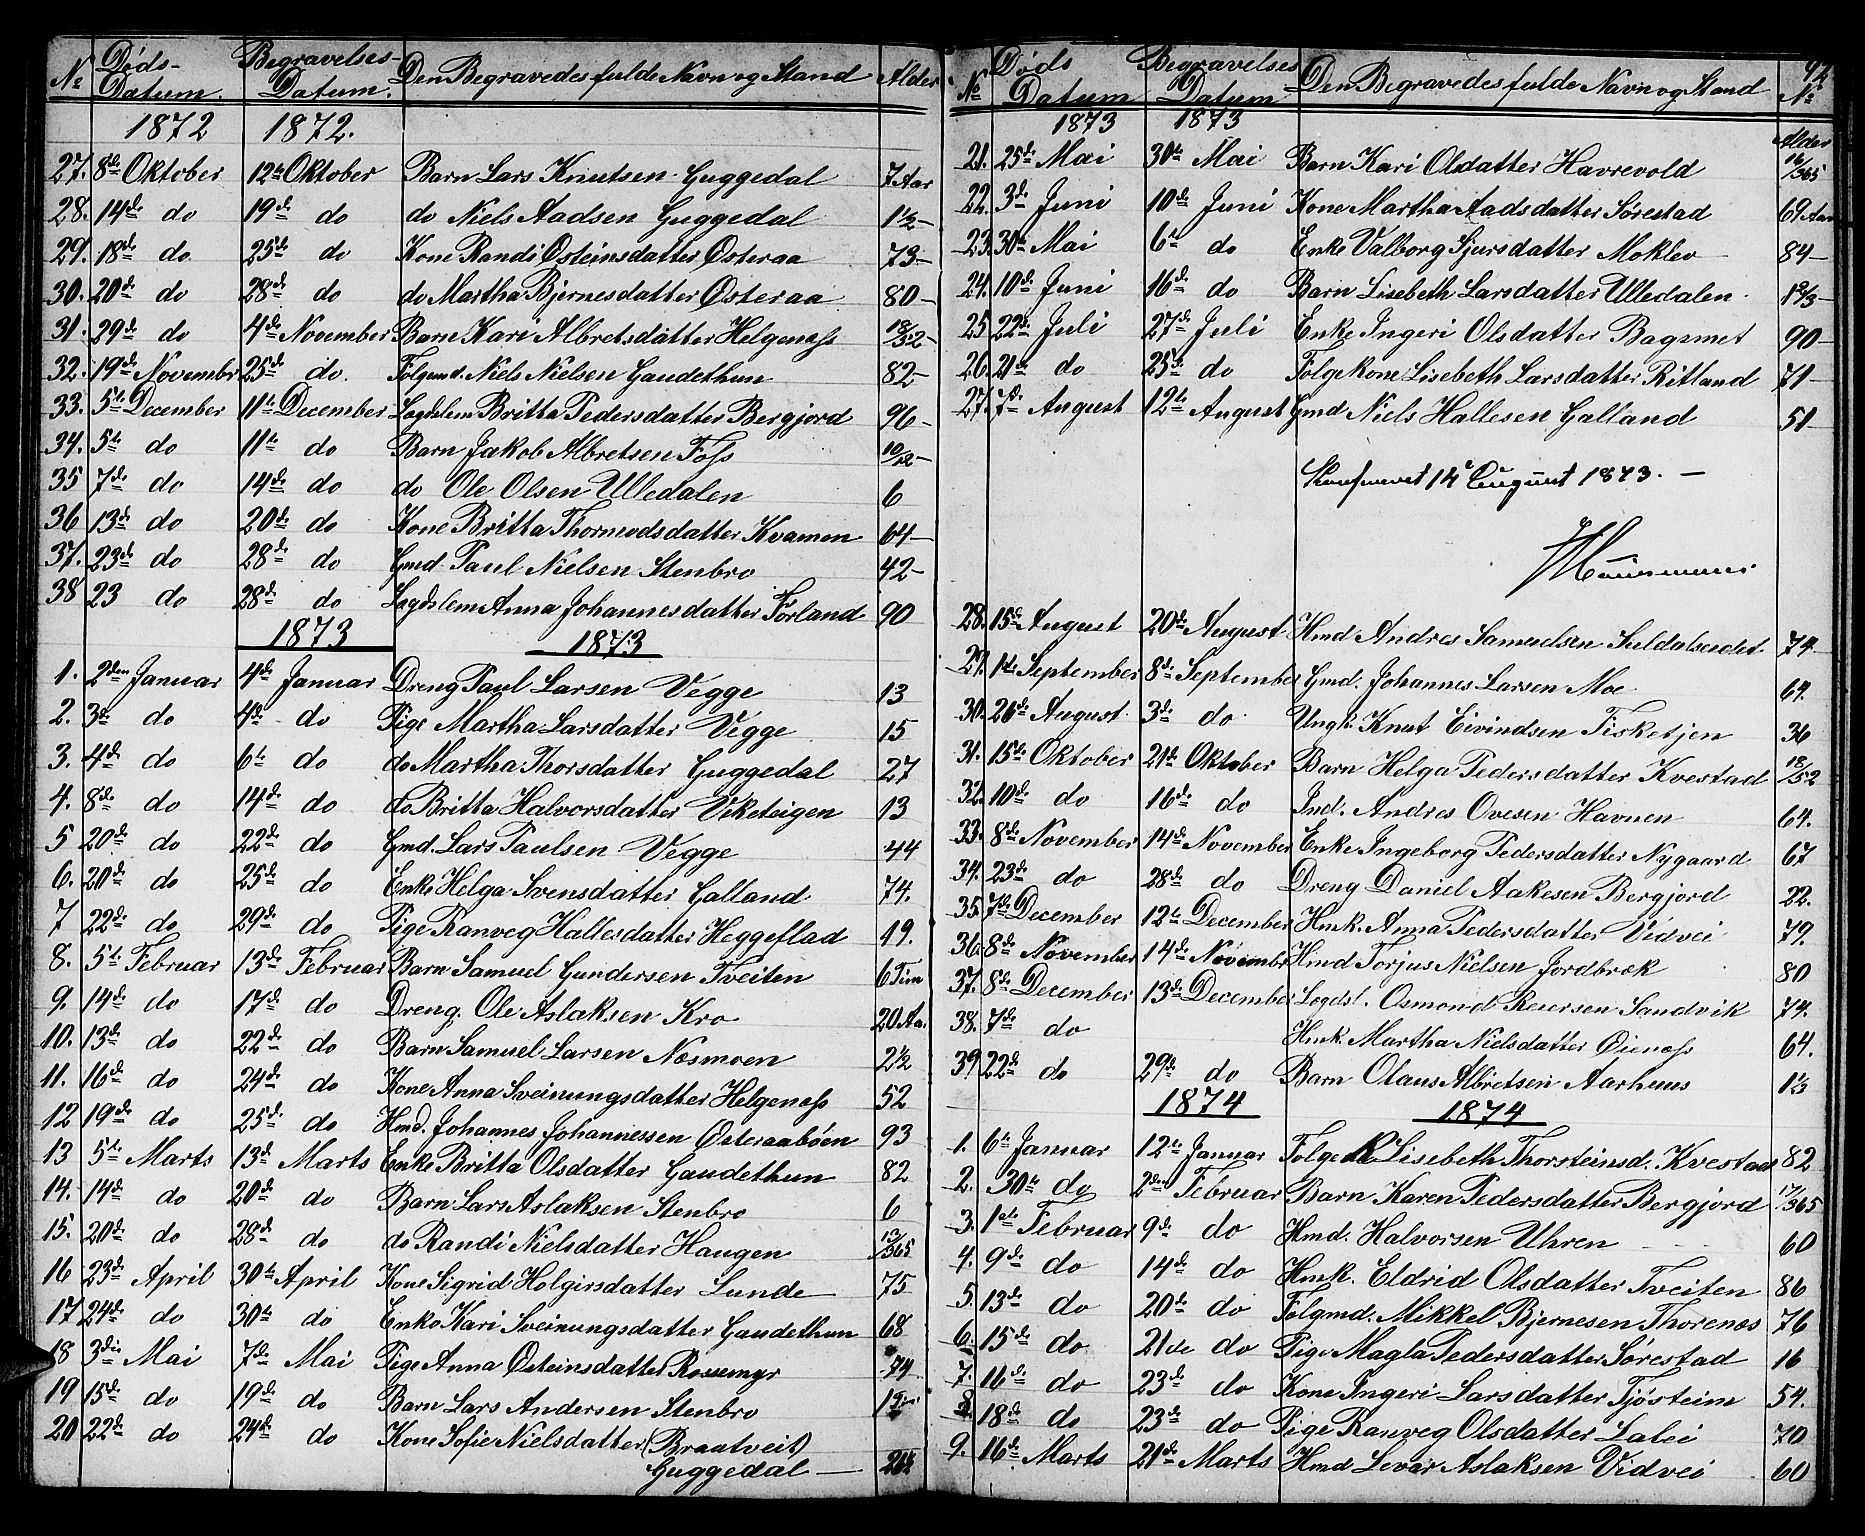 No Døds-Datum. Begravelses-Datum. Den Begravedes fulde Navn og Stand Alder
1872 1872.
27. 8de Oktober 12te Oktober Barn Lars Knutsen Guggedal 7 Aar
28. 14de do 19de do do Niels Aadsen Guggedal 1½ –
29. 18de do 25de do Kone Randi Østeinsdatter Østeraa 73 –
30. 20de do 28de do do Martha Bjernesdatter Østeraa 80 –
31. 29de do 4de November Barn Kari Albretsdatter Helgenæss 18/52 –
32. 19de Novembr 25de do. Folgmd. Niels Nielsen Gaudethun 82 –
33. 5te December 11te December Legdslem Britta Pedersdatter Bergjord 96 –
34. 5te do 11te do Barn Jakob Albretsen Foss 10/12 –
35 7de do 14de do do Ole Olsen Ulledalen 6
36 13de do 20de do Kone Britta Thormodsdatter Kvamen 64 –
37. 23de do 28de do Gmd Paul Nielsen Stenbro 42 –
38 23 do 28de do Legdslem Anna Johannesdatter Førland 90
1873 1873
1. 2den Januar 4de Januar Dreng Paul Larsen Vegge 13
2. 3de do 4de do Pige Martha Larsdatter Vegge 15
3. 4de do 6te do do Martha Thorsdatter Guggedal 27
4. 8de do 14de do do Britta Halvorsdatter Viketeigen 13
5 20de do 22de do Gmd. Lars Paulsen Vegge 44
6. 20de do 25de do Enke Helga Svensdatter Galland 74.
7 22de do 29de do Pige Ranveg Hallesdatter Heggeflad 19.
8. 5te Februar 13de Februar Barn Samuel Gundersen Tveiten 6 Tim
9. 14de do 17de do Dreng. Ole Aslaksen Kro 20 Aa.
10. 13de do 22de do Barn Samuel Larsen Næsmoen 2½
11. 16de do 24de do Kone Anna Sveinungsdatter Helgenæss 52
12 19de do 25de do Hmd. Johannes Johannessen Østeraabøen 93
13 5te Marts 13de Marts Enke Britta Olsdatter Gaudethun 82
14. 14de do 20de do Barn Lars Aslaksen Stenbro 6
15. 20de do 28de do do Randi Nielsdatter Haugen 13/365
16 23de April 30te April Kone Sigrid Holgirsdatter Lunde 75
17 24de do 30te do Enke Kari Sveinungsdatter Gaudethun 68
18 3die Mai 7de Mai Pige Anna Østeinsdatter Rossemyr
19 15de do 19de do Barn Lars Andersen Stenbro
20 22de do 24de do Kone Sofie Nielsdatter (Braatveit)
Guggedal –
92
No Døds Datum Begravelses Datum Den Begravedes fulde Navn og Stand No
1873 1873 Alder
21. 25de Mai 30te Mai Barn Kari Olsdatter Havrevold 16/365
22. 3de Juni 10de Juni Kone Martha Aadsdatter Sørestad 69 Aar
23. 30te Mai 6te do Enke Valborg Sjursdatter Moklev 84 –
24. 10de Juni 16de do Barn Lisebeth Larsdatter Ulledalen.
25 22de Juli 27de Juli Enke Ingeri Olsdatter Bagsmet 90 –
26. 21de do 25de do Folgekone Lisebeth Larsdatter Ritland 71 –
27. 7de August 12te August Gmd Niels Hallesen Galland 51
Konfereret 14e August 1873. –
28. 15de August 20de August Hmd Andres Samuelsen Suldalseidet 74.
29. 1ste September 8de September Gmd. Johannes Larsen Moe 69.
30. 26de August 3de do Ungk. Knut Eivindsen Fisketjen 36
31. 15de Oktober 21de Oktober Barn Helga Pedersdatter Kvestad 18/52
32. 10de do 16de do Ind. Andres Ovesen Havnen 64.
33. 8de November 14de November Enke Ingeborg Pedersdatter Nygaard 67
34. 23de do 28de do Dreng Daniel Aakesen Bergjord 22.
35. 7de December 12te December Hmk. Anna Pedersdatter Vidvei 79.
36. 8de November 14de Novembr Hmd Torjus Nielsen Jordbræk 80
37. 8de December 13de December Legdsl. Osmond Reiersen Sandvik 74.
38. 7de do Hmk. Martha Nielsdatter Øienæss 64.
39 22de do 29de do Barn Olaus Albretsen Aarhuus 1⅓
1874 1874
1. 6te Januar 12te Januar Folge K Lisebeth Thorsteinsd. Kvestad 82
2. 30te do 2den Februar Barn Karen Pedersdatter Bergjord 17/365
3. 1ste Februar 9de do Hmd. Halvorsen Uhren 60
4. 9de do 14de do Hmk. Eldrid Olsdatter Tveiten 86
5. 13de do 20de do Folgmd. Mikkel Bjernesen Thorenæs 76
6. 15de do 21de do Pige Magla Pedersdatter Sørestad 16
7. 16de do 23de do Kone Ingeri Larsdatter Tjøsteim 54.
8. 18de do 23de do Pige Ranveg Olsdatter Lalei 70
9. 16de Marts 21de Marts Hmd Levar Aslaksen Vidvei 60